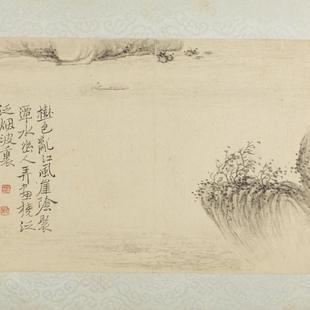 樹色亂江風崖陰
潭水幽人弄畫橈泛
泛烟波裏